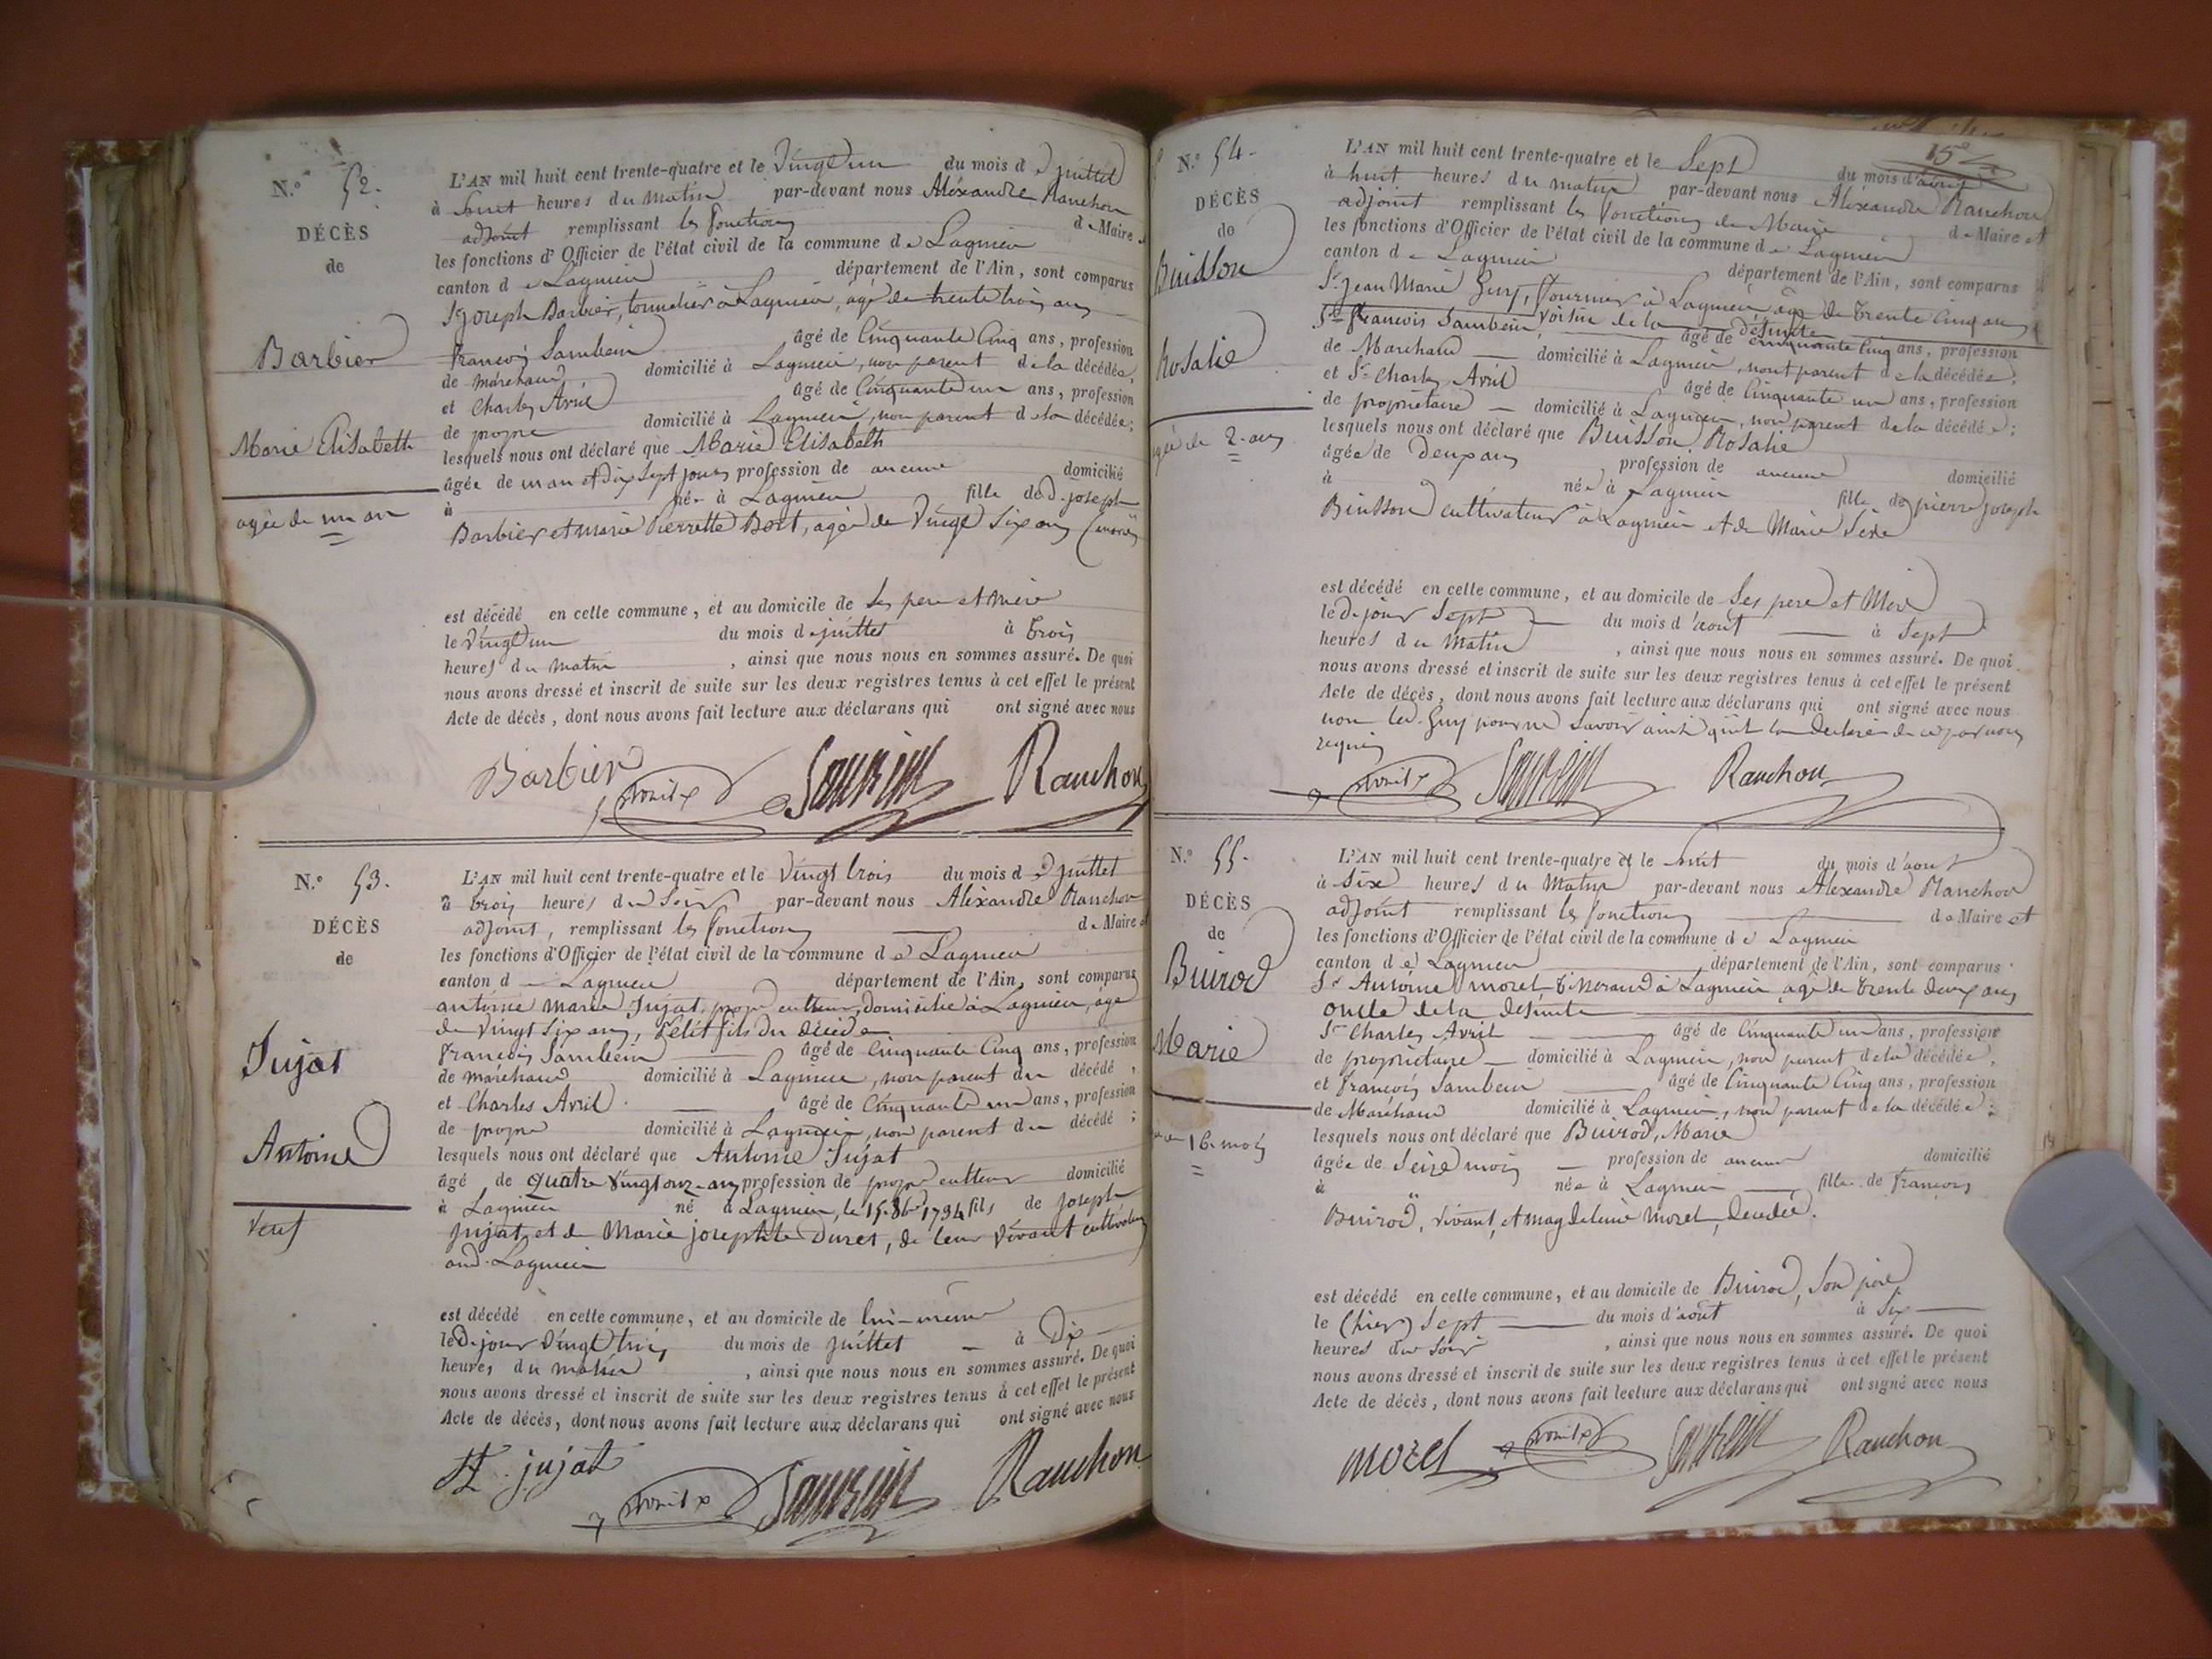 N.° 52.
DÉCÈS
de
Barbier
Marie Elisabeth
agée de un an
L'AN mil huit cent trente-quatre et le Vingt un du mois de juillet
à huit heures du matin par-devant nous Aléxandre Ranchon
adjoint remplissant les fonctions de Maire et
les fonctions d'Officier de l'état civil de la commune de Lagnieu
canton de Lagnieu département de l'Ain, sont comparus
Sr joseph Barbier, tonnelier à Lagnieu, âgé de trente trois ans
francois Sambein âgé de Cinquante Cinq ans, profession
de marchand domicilié à Lagnieu, non parent de la décédée,
et Charles Avril âgé de Cinquante un ans, profession
de propre domicilié à Lagnieu, non parent de la décédée;
lesquels nous ont déclaré que Marie Elisabeth
âgée de un an et dix sept jours profession de aucune domicilié
à née à Lagnieu fille de d. joseph
Barbier et marie Pierrette Bort, agée de Vingt Six ans
est décédé en cette commune, et au domicile de Ses pere et mère
le Vingt un du mois de juillet à trois
heures du matin, ainsi que nous nous en sommes assuré. De quoi
nous avons dressé et inscrit de suite sur les deux registres tenus à cet effet le présent
Acte de décès, dont nous avons fait lecture aux déclarans qui ont signé avec nous
Barbier Avril Ranchon
N.° 53.
DÉCÈS
de
Jujat
Antoine
Veuf
L'AN mil huit cent trente-quatre et le Vingt trois du mois de juillet
à trois heures du Soir par-devant nous Aléxandre Ranchon
adjoint, remplissant les fonctions de Maire et
les fonctions d'Officier de l'état civil de la commune de Lagnieu
canton de Lagnieu département de l'Ain, sont comparus
antoine marie Jujat, propre cultivateur, domicilié à Lagnieu, âgé
de Vingt Six ans, petit fils du décédé
francois Sambein âgé de Cinquante Cinq ans, profession
de marchand domicilié à Lagnieu, non parent du décédé,
et Charles Avril âgé de Cinquante un ans, profession
de propre domicilié à Lagnieu, non parent du décédé;
lesquels nous ont déclaré que Antoine Jujat
âgé de quatre Vingt onze ans profession de propre cultivateur domicilié
à Lagnieu né à Lagnieu, le 15. 8bre 1734 fils de Joseph
Jujat, et de Marie josephte Duret, de leur Vivant cultivateurs
aud. Lagnieu
est décédé en cette commune, et au domicile de lui-même
le d. jour Vingt trois du mois de juillet à Dix
heures du matin, ainsi que nous nous en sommes assuré. De quoi
nous avons dressé et inscrit de suite sur les deux registres tenus à cet effet le présent
Acte de décès, dont nous avons fait lecture aux déclarans qui ont signé avec nous
jujat Avril Ranchon
15e
N.° 54.
DÉCÈS
de
Buisson
Rosalie
agée de 2 ans
L'AN mil huit cent trente-quatre et le Sept du mois d'août
à huit heures du matin par-devant nous Aléxandre Ranchon
adjoint remplissant les fonctions de Maire de Maire et
les fonctions d'Officier de l'état civil de la commune de Lagnieu
canton de Lagnieu département de l'Ain, sont comparus
Sr Jean Marie Guy, fournier à Lagnieu âgé de trente Cinq ans
Sr francois Sambein, Voisin de la défunte âgé de cinquante Cinq ans, profession
de Marchand domicilié à Lagnieu, non parent de la décédée;
et Sr Charles Avril âgé de Cinquante un ans, profession
de propriétaire domicilié à Lagnieu, non parent de la décédée;
lesquels nous ont déclaré que Buisson Rosalie
âgée de Deux ans profession de aucune domicilié
à née à Lagnieu fille de pierre joseph
Buisson cultivateur à Lagnieu et de Marie
est décédé en cette commune, et au domicile de Ses pere et Mere
le d. jour Sept du mois d'août à Sept
heures du Matin, ainsi que nous nous en sommes assuré. De quoi
nous avons dressé et inscrit de suite sur les deux registres tenus à cet effet le présent
Acte de décès, dont nous avons fait lecture aux déclarans qui ont signé avec nous
non led. Guy pour ne savoir ainsi qu'il l'a déclaré de ce par nous
requis
Avril Ranchon
N.° 55.
DÉCÈS
de
Buirod
Marie
16 mois
L'AN mil huit cent trente-quatre et le huit du mois d'aout
à Six heures du Matin par-devant nous Aléxandre Ranchon
adjoint remplissant les fonctions de Maire et
les fonctions d'Officier de l'état civil de la commune de Lagnieu
canton de Lagnieu département de l'Ain, sont comparus
Sr Antoine morel Tisserand à Lagnieu agé de trente deux ans
oncle de la défunte
Sr Charles Avril âgé de Cinquante un ans, profession
de propriétaire domicilié à Lagnieu, non parent de la décédée,
et francois Sambein âgé de Cinquante Cinq ans, profession
de Marchand domicilié à Lagnieu, non parent de la décédée;
lesquels nous ont déclaré que Buirod, Marie
âgée de Seize mois profession de aucune domicilié
à née à Lagnieu fille de francois
Buirod, vivant, et magdeleine morel, decedée.
est décédé en cette commune, et au domicile de Buirod, Son père
le (hier) Sept du mois d'août à Six
heures du Soir, ainsi que nous nous en sommes assuré. De quoi
nous avons dressé et inscrit de suite sur les deux registres tenus à cet effet le présent
Acte de décès, dont nous avons fait lecture aux déclarans qui ont signé avec nous
morel Avril Ranchon